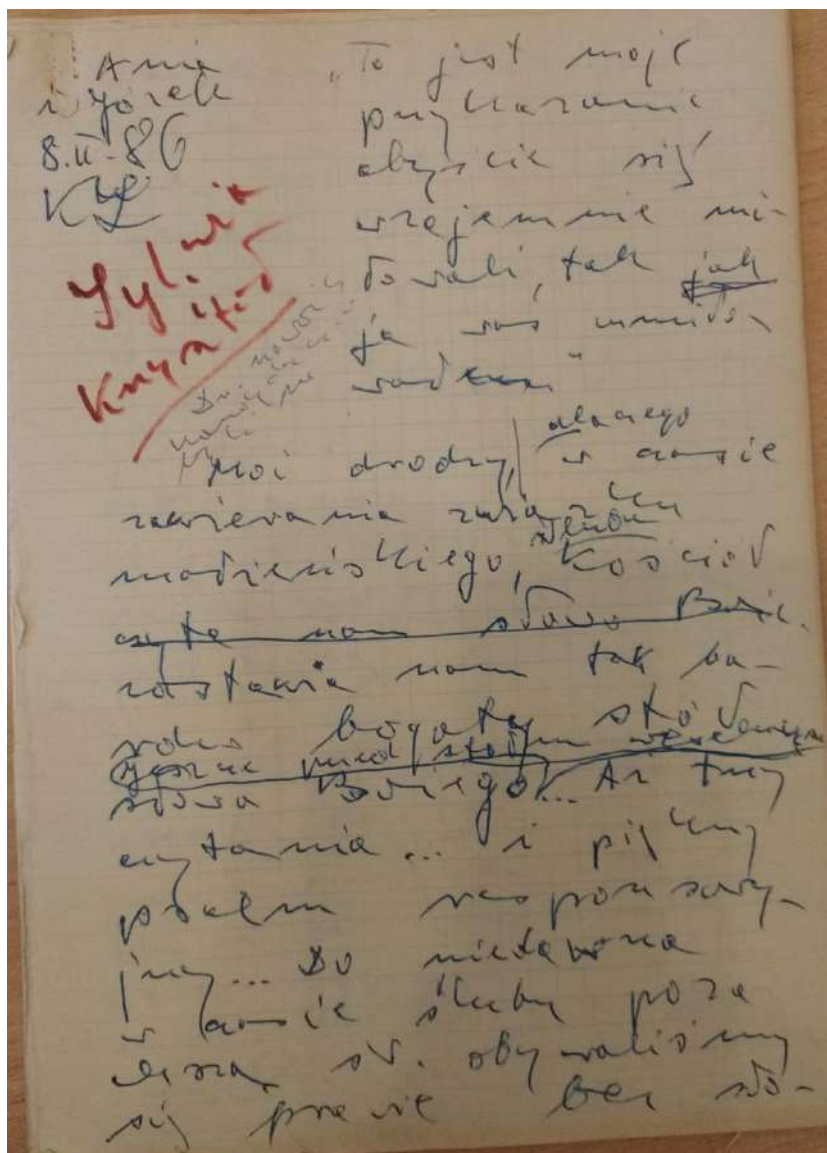 Ania
i Jurek
8.II.86
KŁ
Sylwia
i
Krzysztof
"To jest moje
przykazanie
abyście się
wzajemnie mi-
łowali, tak jak
ja was umiło-
wałem"
Moi drodzy, dlaczego w czasie
zawierania związku
małżeńskiego, Kościół
czyta nam słowo Boże.
zastawia nam tak ba-
rdzo bogaty stół
(jeszcze przed stołem weselnym
słowa Bożego... Aż trzy
czytania... i piękny
psalm responsory-
jny... Do niedawna
w czasie ślubu poza
Mszą św. obywaliśmy
się prawie bez sło-